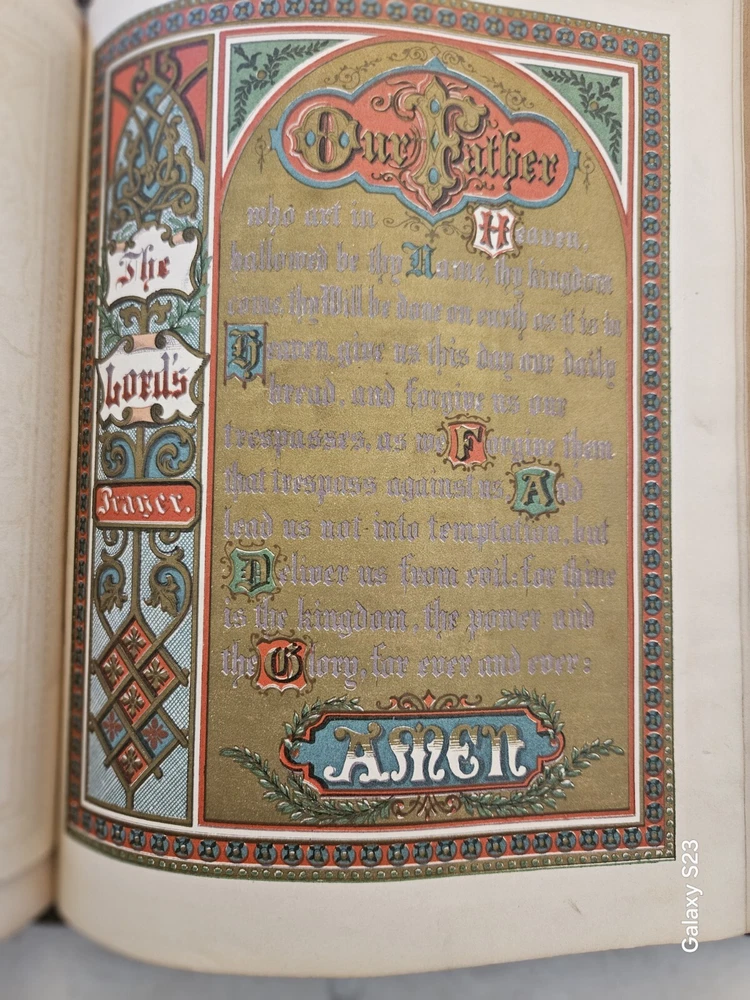 The
Lord's
Prayer.
Our Father
who art in Heaven,
hallowed be thy Name, thy kingdom
come, thy Will be done on earth as it is in
Heaven, give us this day our daily
bread, and forgive us our
trespasses, as we Forgive them
that trespass against us, And
lead us not into temptation, but
Deliver us from evil: for thine
is the kingdom, the power and
the Glory, for ever and ever:
AMEN
Galaxy S23